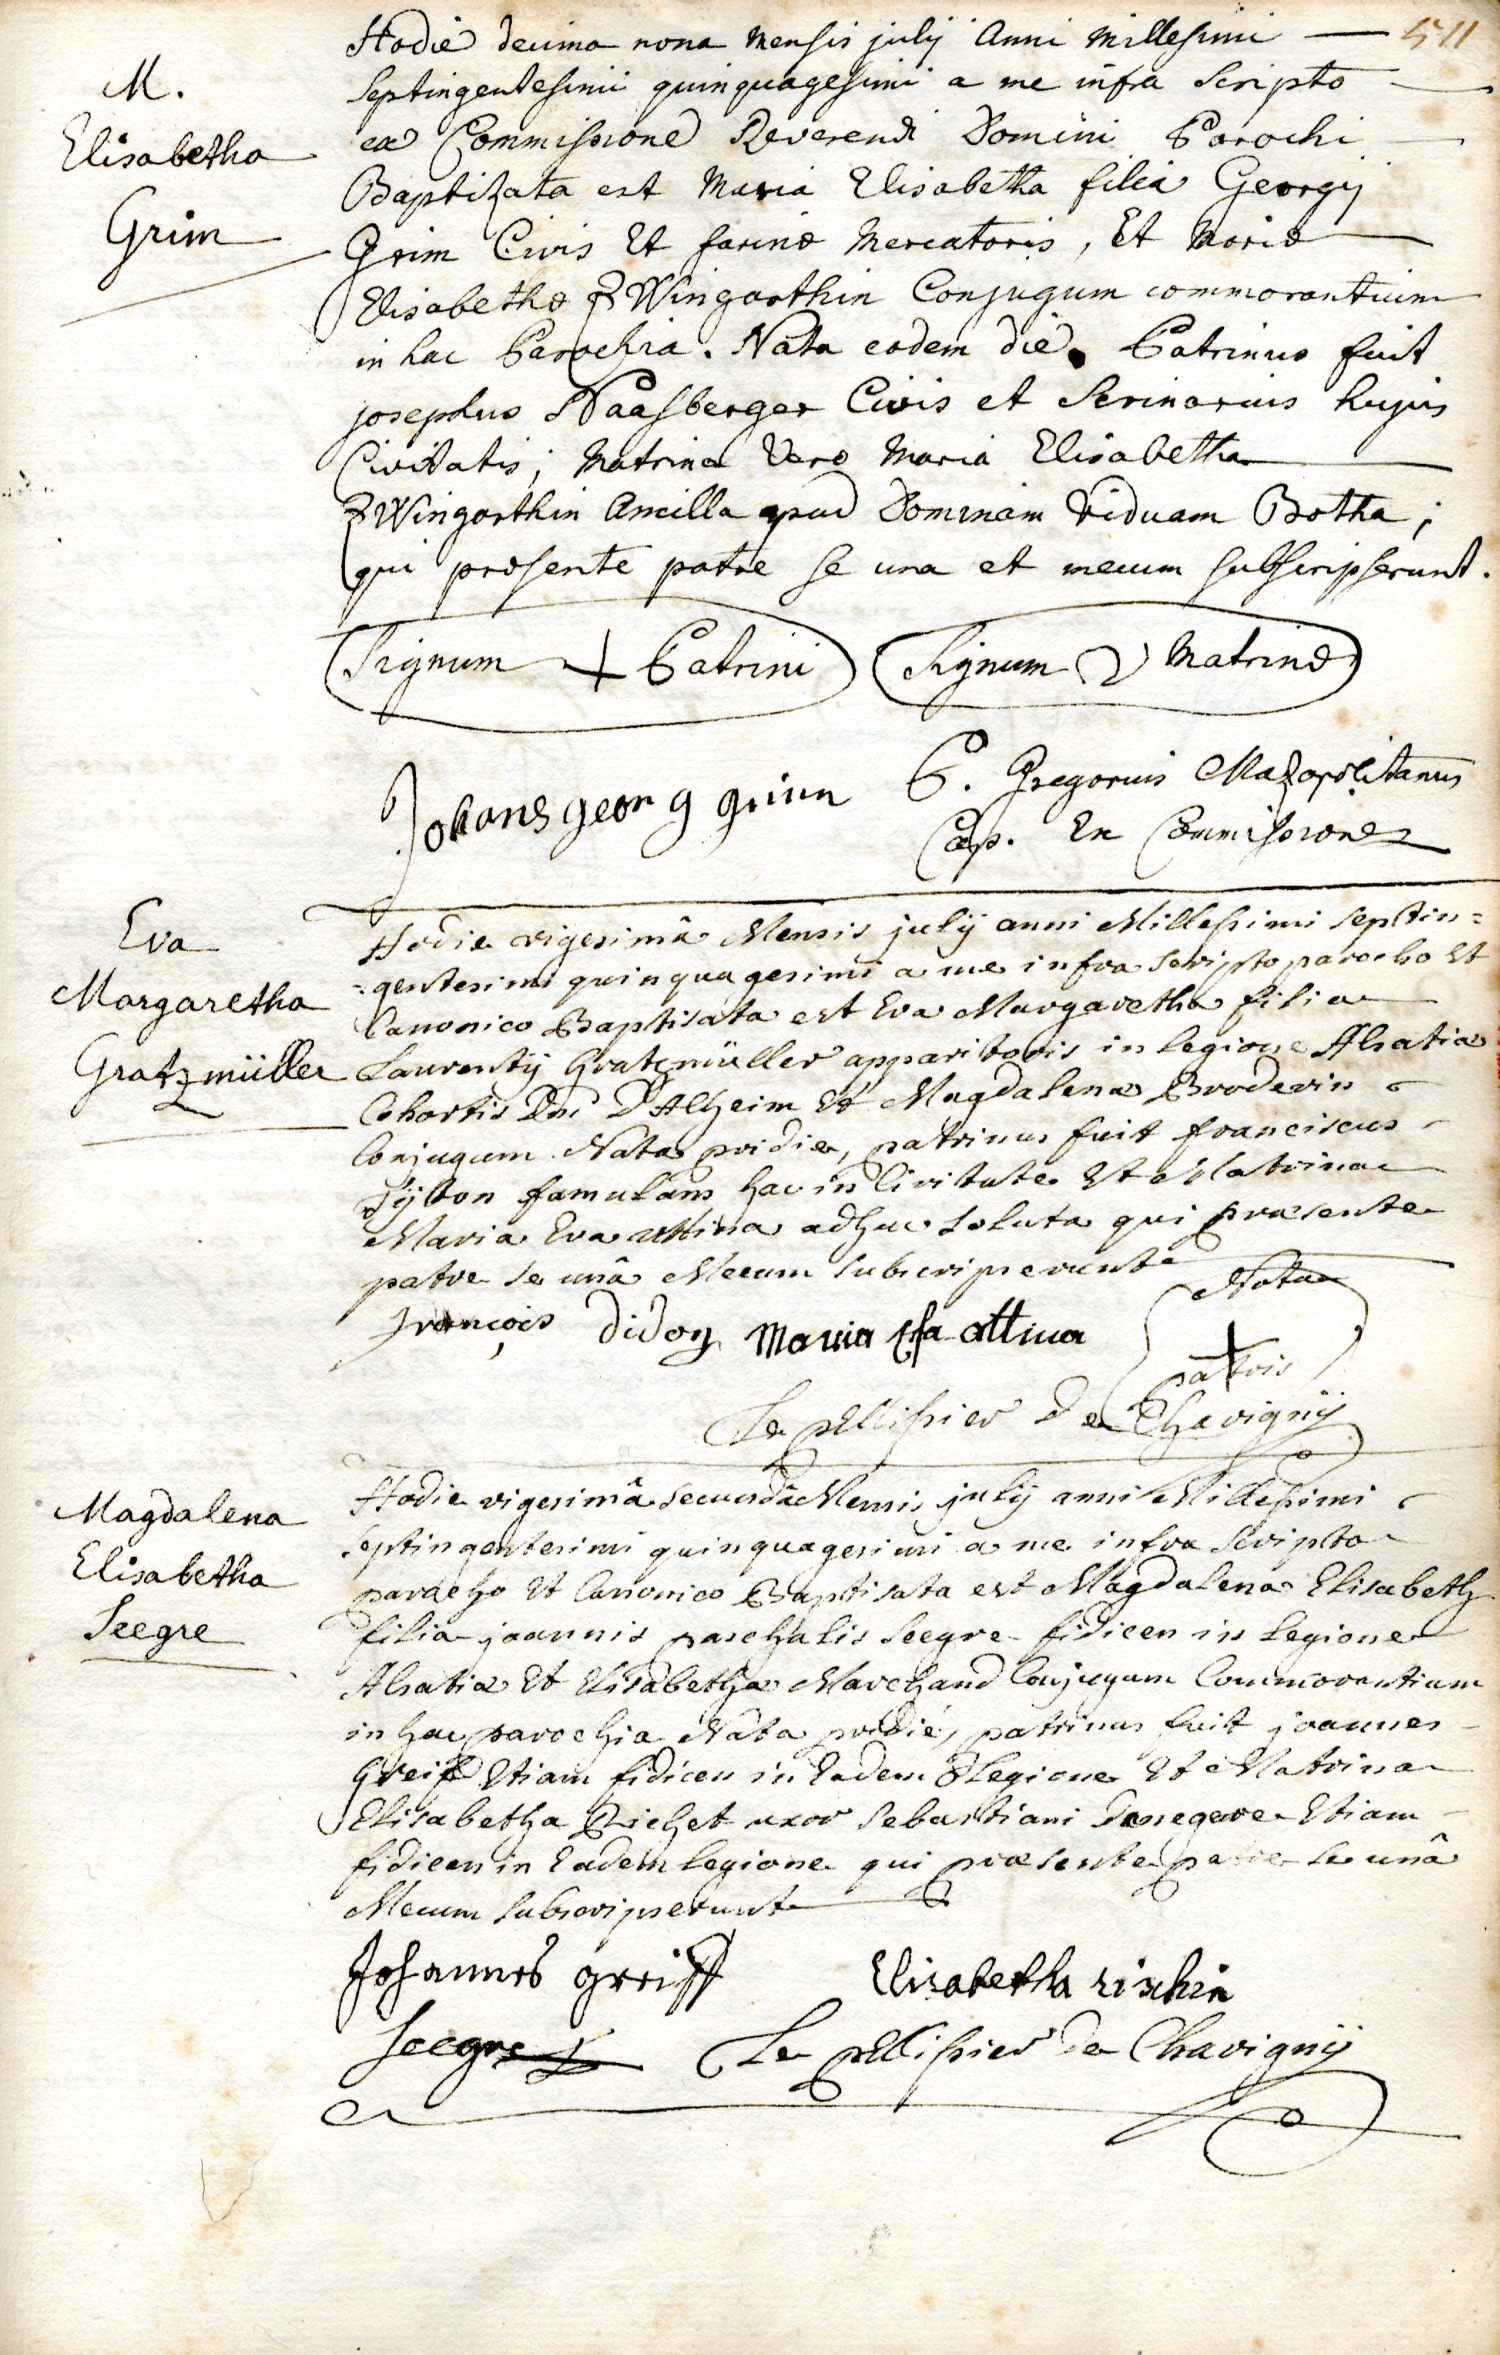 511
M.
Elisabetha
Grim
Hodie decima nona mensis julij Anni millesimi
septingentesimi quinquagesimi a me infra scripto
ex Commissione Reverendi Domini Parochi
Baptizata est Maria Elisabetha filia Georgij
Grim Civis Et farinæ Mercatoris, Et Mariæ
Elisabethæ ZWingarthin Conjugum commorantium
in hac Parochia. Nata eodem die. Patrinus fuit
josephus Haasberger Civis et Scrinarius hujus
Civitatis; Matrina Vero Maria Elisabetha
ZWingarthin Ancilla apud Dominam Viduam Botha;
qui præsente patre se una et mecum subscripserunt.
Signum + Patrini Signum Matrinæ
Johans georg grim P. Gregorius
Cap. Ex Commissione
Eva
Margaretha
Gratzmüller
Hodie vigesimâ Mensis julij anni Millesimi septin=
=gentesimi quinquagesimi a me infra scripto parocho Et
Canonico Baptisata est Eva Margaretha filia
Laurentij Gratzmüller apparitoris in legione Alsatiæ
Cohortis Dni D'Alheim Et Magdalena Broderin
Conjugum Nata pridie, patrinus fuit franciscus
famulans hac in Civitate Et Matrina
Maria Eva Attina adhuc soluta qui præsente
patre se unâ Mecum subscripserunt
françois didon Maria efa attina
Nota
+
patris
Le pellissier de Chavignÿ
Magdalena
Elisabetha
Seegre
Hodie vigesimâ secundâ Mensis julij anni Millesimi
septingentesimi quinquagesimi a me infra scripto
parocho Et Canonico Baptisata est Magdalena Elisabeth
filia joannis paschalis Seegre fidicen in legione
Alsatiæ Et Elisabetha Marchand Conjugum Commorantium
in hac parochia Nata pridie, patrinus fuit joannes
Greiff Etiam fidicen in Eadem Legione Et Matrina
Elisabetha Richet uxor Sebastiani Etiam
fidicen in Eadem legione qui præsente patre se unâ
Mecum subscripserunt
Johannes greiff Elisabetha rischin
Seegre Le pellissier de Chavignÿ